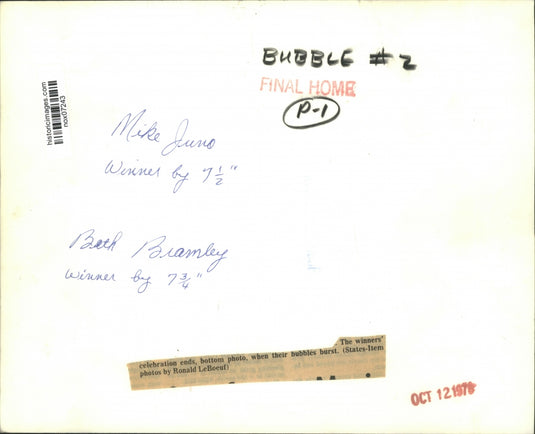 BUBBLE #2
FINAL HOME
P-1
historicimages.com
nox07243
Mike Juno
Winner by 7 1/2"
Beth Bramley
Winner by 7 3/4"
. The winners'
celebration ends, bottom photo, when their bubbles burst. (States-Item
photos by Ronald LeBoeuf)
OCT 12 1978